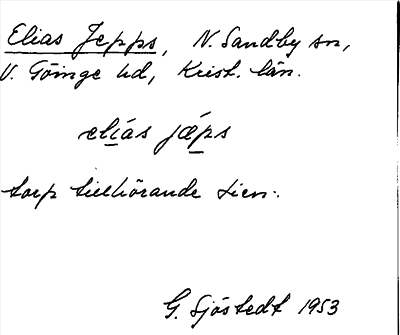 Elias Jepps, N. Sandby sn,
V. Göinge hd, Krist. län.
elías jǽps
torp tillhörande
G. Sjöstedt 1953